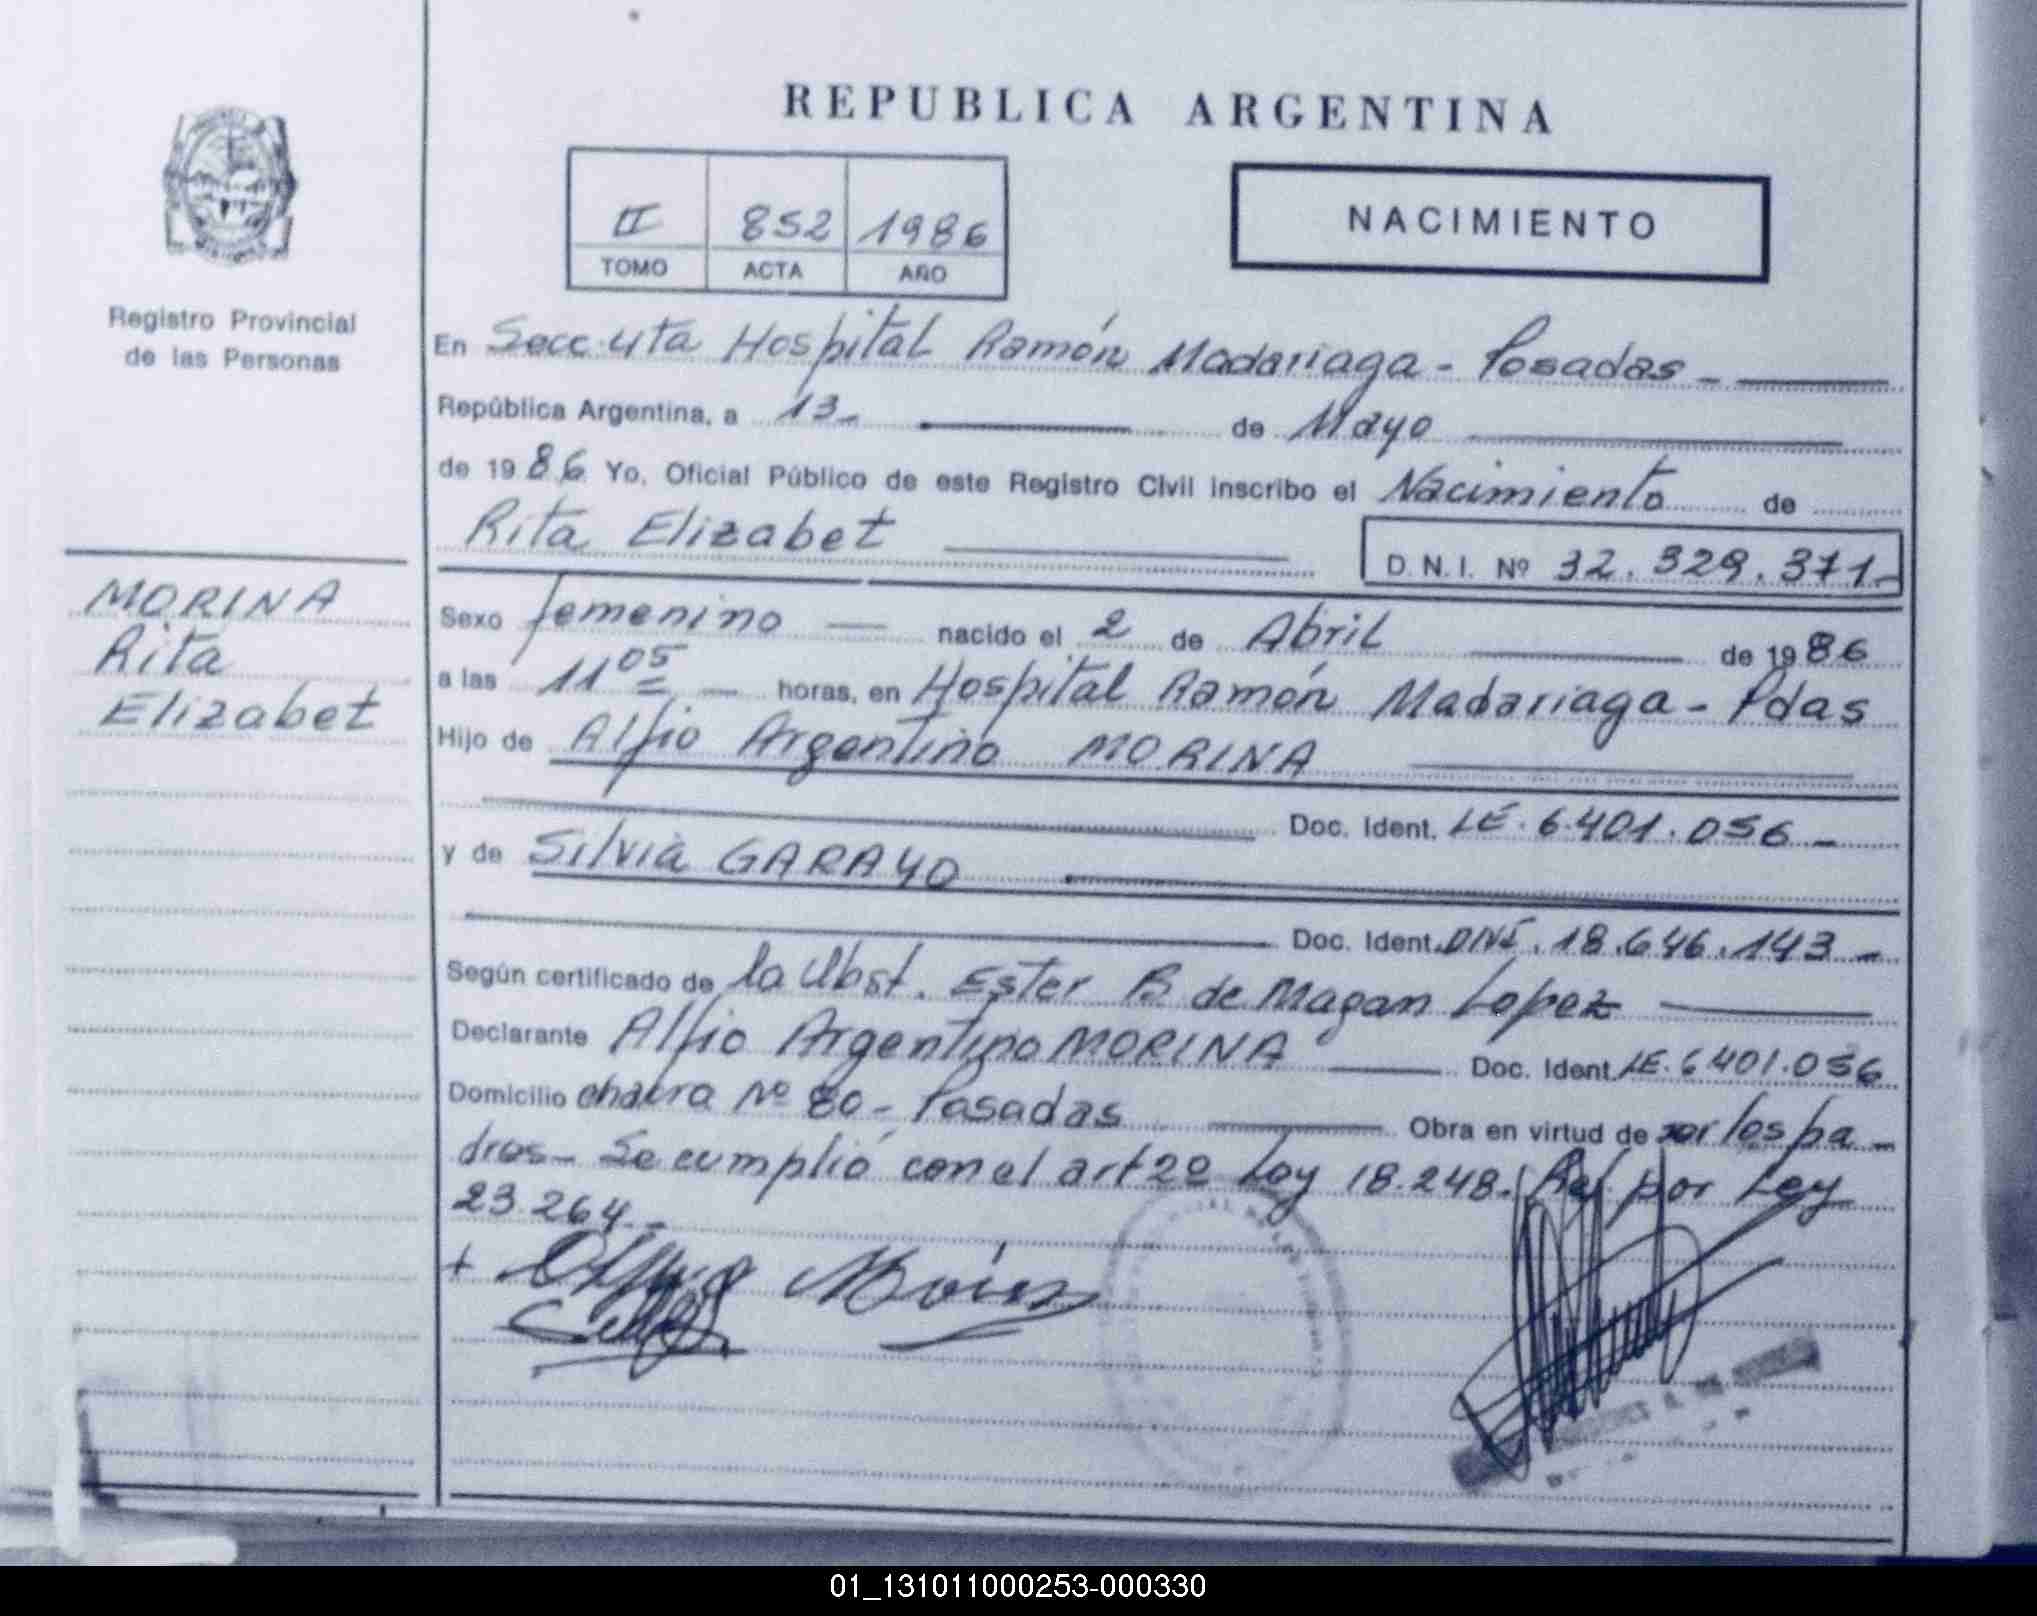 REPUBLICA ARGENTINA
II 852 1986
TOMO ACTA AÑO
NACIMIENTO
Registro Provincial
de las Personas
MORINA
Rita
Elizabet
En Secc. 4ta Hospital Ramón Madariaga - Posadas -
República Argentina, a 13- de Mayo
de 1986 Yo, Oficial Público de este Registro Civil inscribo el Nacimiento de
Rita Elizabet
D.N.I. Nº 32.329.371-
Sexo femenino nacido el 2 de Abril de 1986
a las 11 05 horas, en Hospital Ramón Madariaga - Pdas
Hijo de Alfio Argentino MORINA
Doc. Ident. LE. 6.401.056 -
y de Silvia GARAYO
Doc. Ident. DNI. 18.646.143 -
Según certificado de la Obst. Ester B. de Magan Lopez
Declarante Alfio Argentino MORINA Doc. Ident. LE. 6.401.056
Domicilio chacra Nº 80 - Posadas Obra en virtud de por los pa-
dres - Se cumplió con el art 2º Ley 18.248. Ref. por Ley
23.264. -
01_131011000253-000330